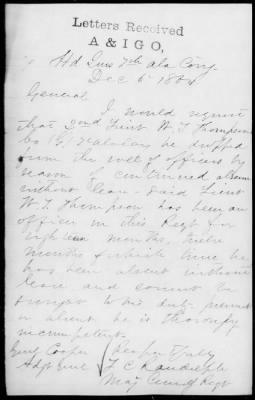 Letters Received
A & I G O,
Hd Qrs 7th Ala Cav.
Dec 6 1864
General
I would request
that 2nd Lieut W. T. Thompson
Co Ala Cav be dropped
from the roll of officers by
reason of continued absence
without leave. Said Lieut
W. T. Thompson has been an
officer in this Regt for
eighteen months, twelve
months of which time he
has been absent without
leave, and cannot be
brought to his duty present
or absent he is thoroughly
incompetent.
Genl Cooper
Adjt Genl
Respectfully
F. C. Randolph
Maj Comdg Regt